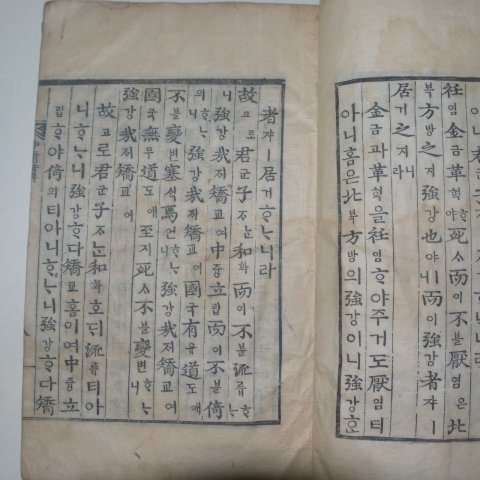 衽임金금革혁ᄒᆞ야死ᄉᆞ而이不블厭염은北
븍方방之지強강也야ㅣ니而이強강者쟈ㅣ
居거之지니라
金금과革혁을衽임ᄒᆞ야주거도厭염티
아니홈은北븍方방의強강이니強강ᄒᆞᆫ
者쟈ㅣ居거ᄒᆞᄂᆞ니라
故고로君군子ᄌᆞᄂᆞᆫ和화而이不블流류ᄒᆞᄂᆞ
니強강哉ᄌᆡ矯교여中듕立립而이不블倚
의ᄒᆞᄂᆞ니強강哉ᄌᆡ矯교여國국有유道도애
不블變변塞ᄉᆡᆨ焉언ᄒᆞᄂᆞ니強강哉ᄌᆡ矯교여
國국無무道도애至지死ᄉᆞ不블變변ᄒᆞᄂᆞ니
強강哉ᄌᆡ矯교여
故고로君군子ᄌᆞᄂᆞᆫ和화호ᄃᆡ流류티아
니ᄒᆞᄂᆞ니強강ᄒᆞ다矯교홈이여中듕立
립ᄒᆞ야倚의티아니ᄒᆞᄂᆞ니強강ᄒᆞ다矯